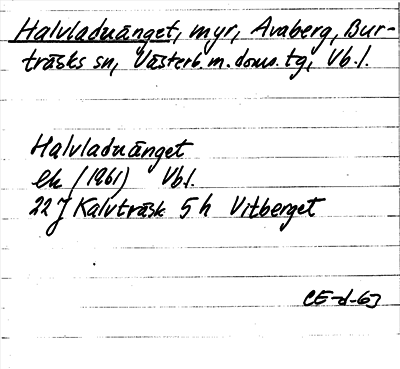 Halvladuänget, myr, Avaberg, Bur-
träsks sn, Västerb. m. doms. tg, Vb. l.
Halvladuänget
ek (1961) Vb. l.
22 J Kalvträsk 5 h Vitberget
CE-d-63